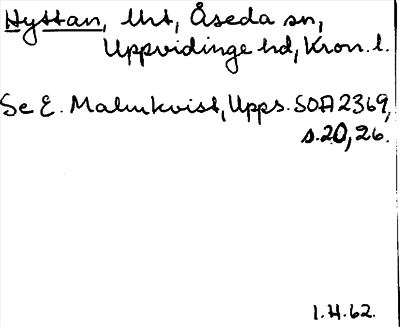 Hyttan, Urt, Åseda sn,
Uppvidinge hd, Kron. l.
Se E. Malmkvist, Upps. SOA 2369,
s. 20, 26.
1.H.62.